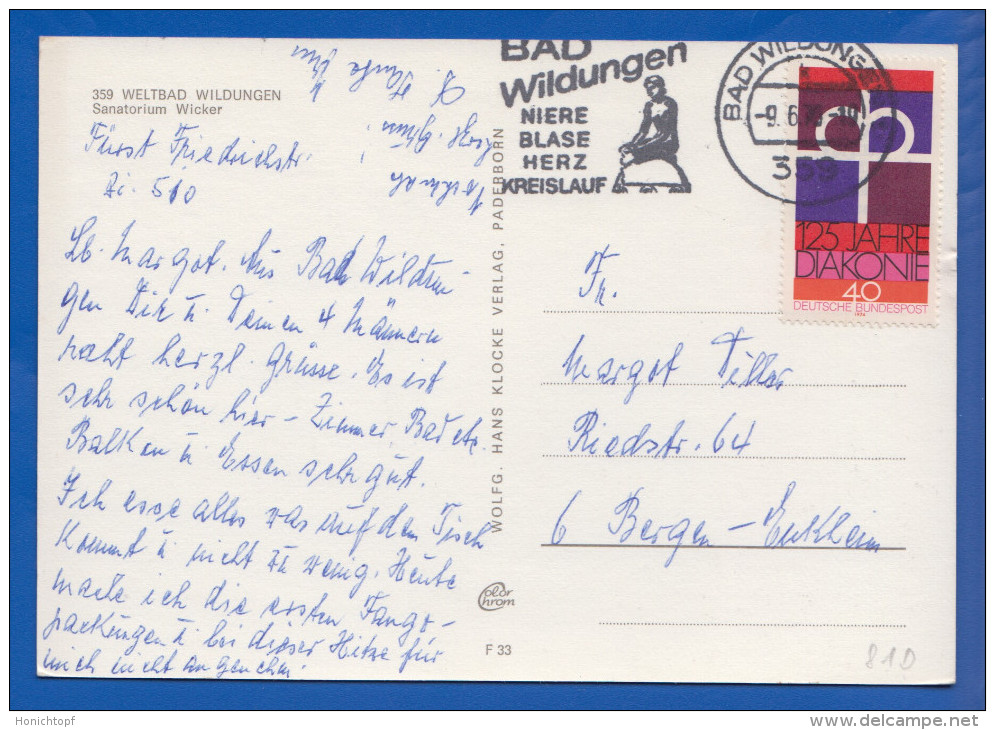 359 WELTBAD WILDUNGEN
Sanatorium Wicker
Fürst Friedrichstr.
Zi. 510
Lb. Margot. Aus Bad Wildun-
gen Dir u. Deinen 4 Männern
recht herzl. Grüsse. Es ist
sehr schön hier - Zimmer, Bad etc.
Balkon u. Essen sehr gut.
Ich esse alles was auf den Tisch
kommt u. nicht zu wenig. Heute
mache ich die ersten Fango-
packungen u. bei dieser Hitze für
mich nicht angenehm.
WOLFG. HANS KLOCKE VERLAG, PADERBORN
Color
Chrom
F 33
BAD
Wildungen
NIERE
BLASE
HERZ
KREISLAUF
BAD WILDUNGEN
-9.6.
359
125 JAHRE
DIAKONIE
40
DEUTSCHE BUNDESPOST
Fr.
Margot Diller
Riedstr. 64
6 Bergen-Enkheim
81D
Honichtopf
www.delcampe.net